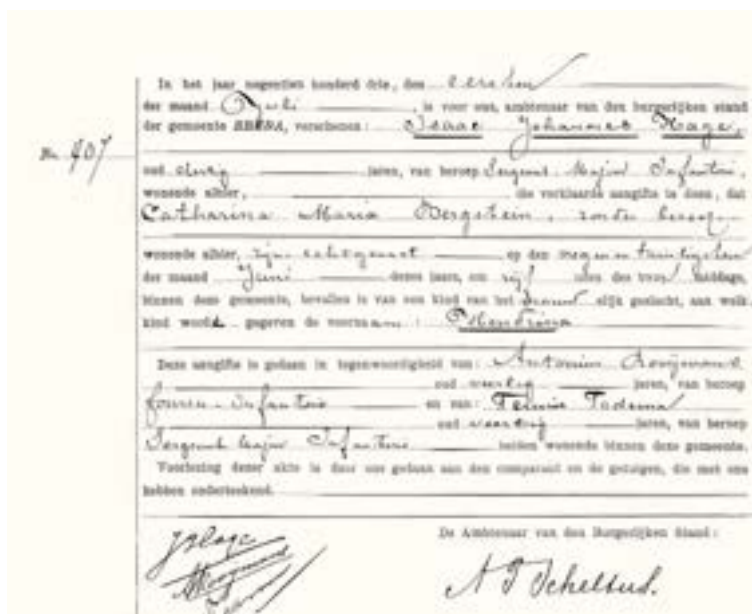 In het jaar negentien honderd drie, den eersten
der maand Juli, is voor ons, ambtenaar van den burgerlijken stand
der gemeente BREDA, verschenen: Isaac Johannes Hage,
No. 407
oud dertig jaren, van beroep Sergeant-Majoor Infanterie,
wonende alhier, die verklaarde aangifte te doen, dat
Catharina Maria Bergstein, zonder beroep
wonende alhier, zijne echtgenoot op den negenentwintigsten
der maand Juni dezes jaars, om vijf uren des voor middags,
binnen deze gemeente, bevallen is van een kind van het vrouwelijk geslacht, aan welk
kind wordt gegeven de voornaam: Hendrina
Deze aangifte is gedaan in tegenwoordigheid van: Antonius
oud veertig jaren, van beroep
Infanterie en van: Teunis Tadema
oud veertig jaren, van beroep
Sergeant Majoor Infanterie beiden wonende binnen deze gemeente.
Voorlezing dezer akte is door ons gedaan aan den comparant en de getuigen, die met ons
hebben onderteekend.
De Ambtenaar van den Burgerlijken Stand:
JHage